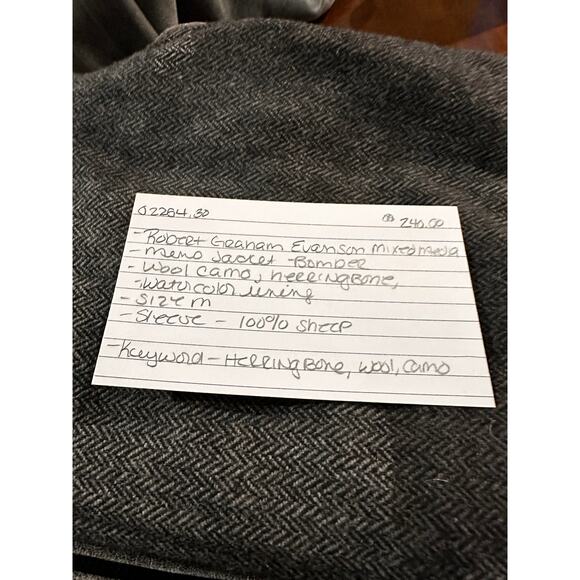 02284.30 240.00
- Robert Graham Evanson mixed media
- mens Jacket - Bomber
- Wool camo, Herringbone,
- Watercolor lining
- Size m
- Sleeve - 100% sheep
- Keyword - Herringbone, wool, camo